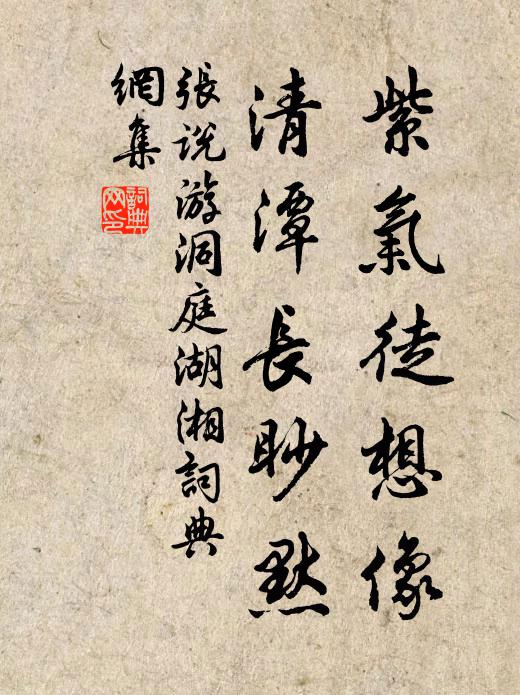 紫氣徒想像
清潭長眇默
張說游洞庭湖湘詞典
網集
詞典网印